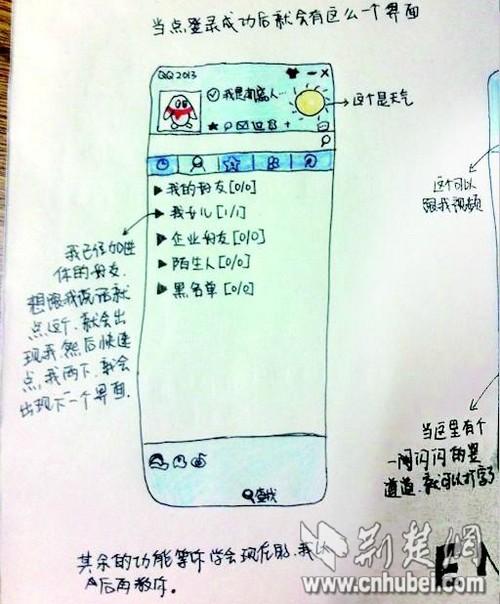 当点登录成功后就会有这么一个界面
QQ 2013
我是机器人...
这个是天气
我的好友 [0/0]
我女儿 [1/1]
企业好友 [0/0]
陌生人 [0/0]
黑名单 [0/0]
我已经加进
你的好友.
想跟我说话就
点这个.就会出
现我.然后快速
点.我两下.就会
出现下一个界面.
这个可以
跟我视频
当这里有个
一闪闪闪的竖
道道.就可以打字了
查找
其余的功能等你学会现在的.我
后再教你。
荆楚网
www.cnhubei.com